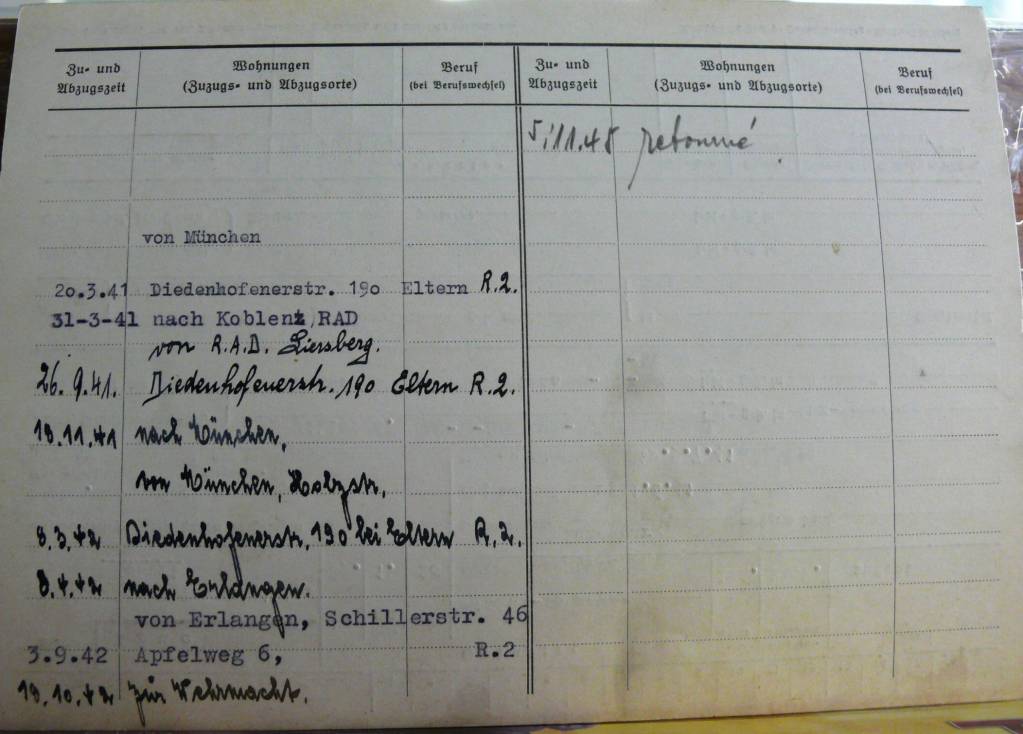 Zu- und Abzugszeit
Wohnungen (Zuzugs- und Abzugsorte)
Beruf (bei Berufswechsel)
Zu- und Abzugszeit
Wohnungen (Zuzugs- und Abzugsorte)
Beruf (bei Berufswechsel)
von München
20.3.41 Diedenhofenerstr. 190 Eltern R.2.
31-3-41 nach Koblenz, RAD
von R.A.D. Liersberg.
26.9.41. Diedenhofenerstr. 190 Eltern R.2.
18.11.41 nach München,
von München, Holzstr.
8.3.42 Diedenhofenerstr. 190 bei Eltern R.2.
8.4.42 nach Erlangen.
von Erlangen, Schillerstr. 46
3.9.42 Apfelweg 6, R.2
19.10.42 zur Wehrmacht.
5.11.48 retourné